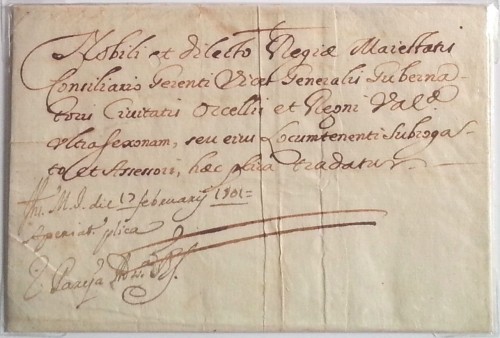 Nobili et dilecto Regiæ Maiestatis
Consiliario Gerenti Vices Generalis Guberna-
toris Civitatis Orcellis et Regni Val.
Ultrasexonam, seu eius Locumtenenti Subroga-
to et Assessori, hæc plica tradatur
die 17 february 1701=
plica